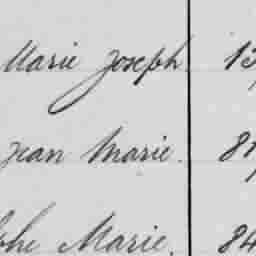 Marie Joseph 13
Jean Marie. 81
phe Marie. 84